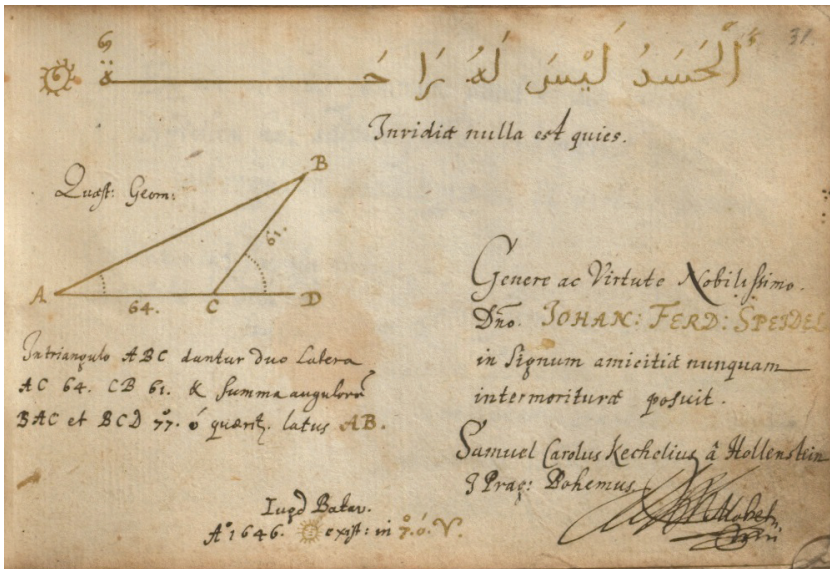 31.
اَلْحَسَدُ لَيْسَ لَهُ رَاحَةٌ
Invidiæ nulla est quies.
Quæst: Geom:
B
61.
A 64. C D
In triangulo ABC dantur duo Latera
AC 64. CB 61. & summa angulorũ
BAC et BCD 77. ó quærit latus AB.
Genere ac Virtute Nobilissimo.
Dño. IOHAN: FERD: SPEIDEL
in signum amicitiæ nunquam
intermorituræ posuit.
Samuel Carolus Kechelius â Hollenstein
Prag: Bohemus
Lugd Batav.
Aº 1646. exist: in 7. ó. ♈.